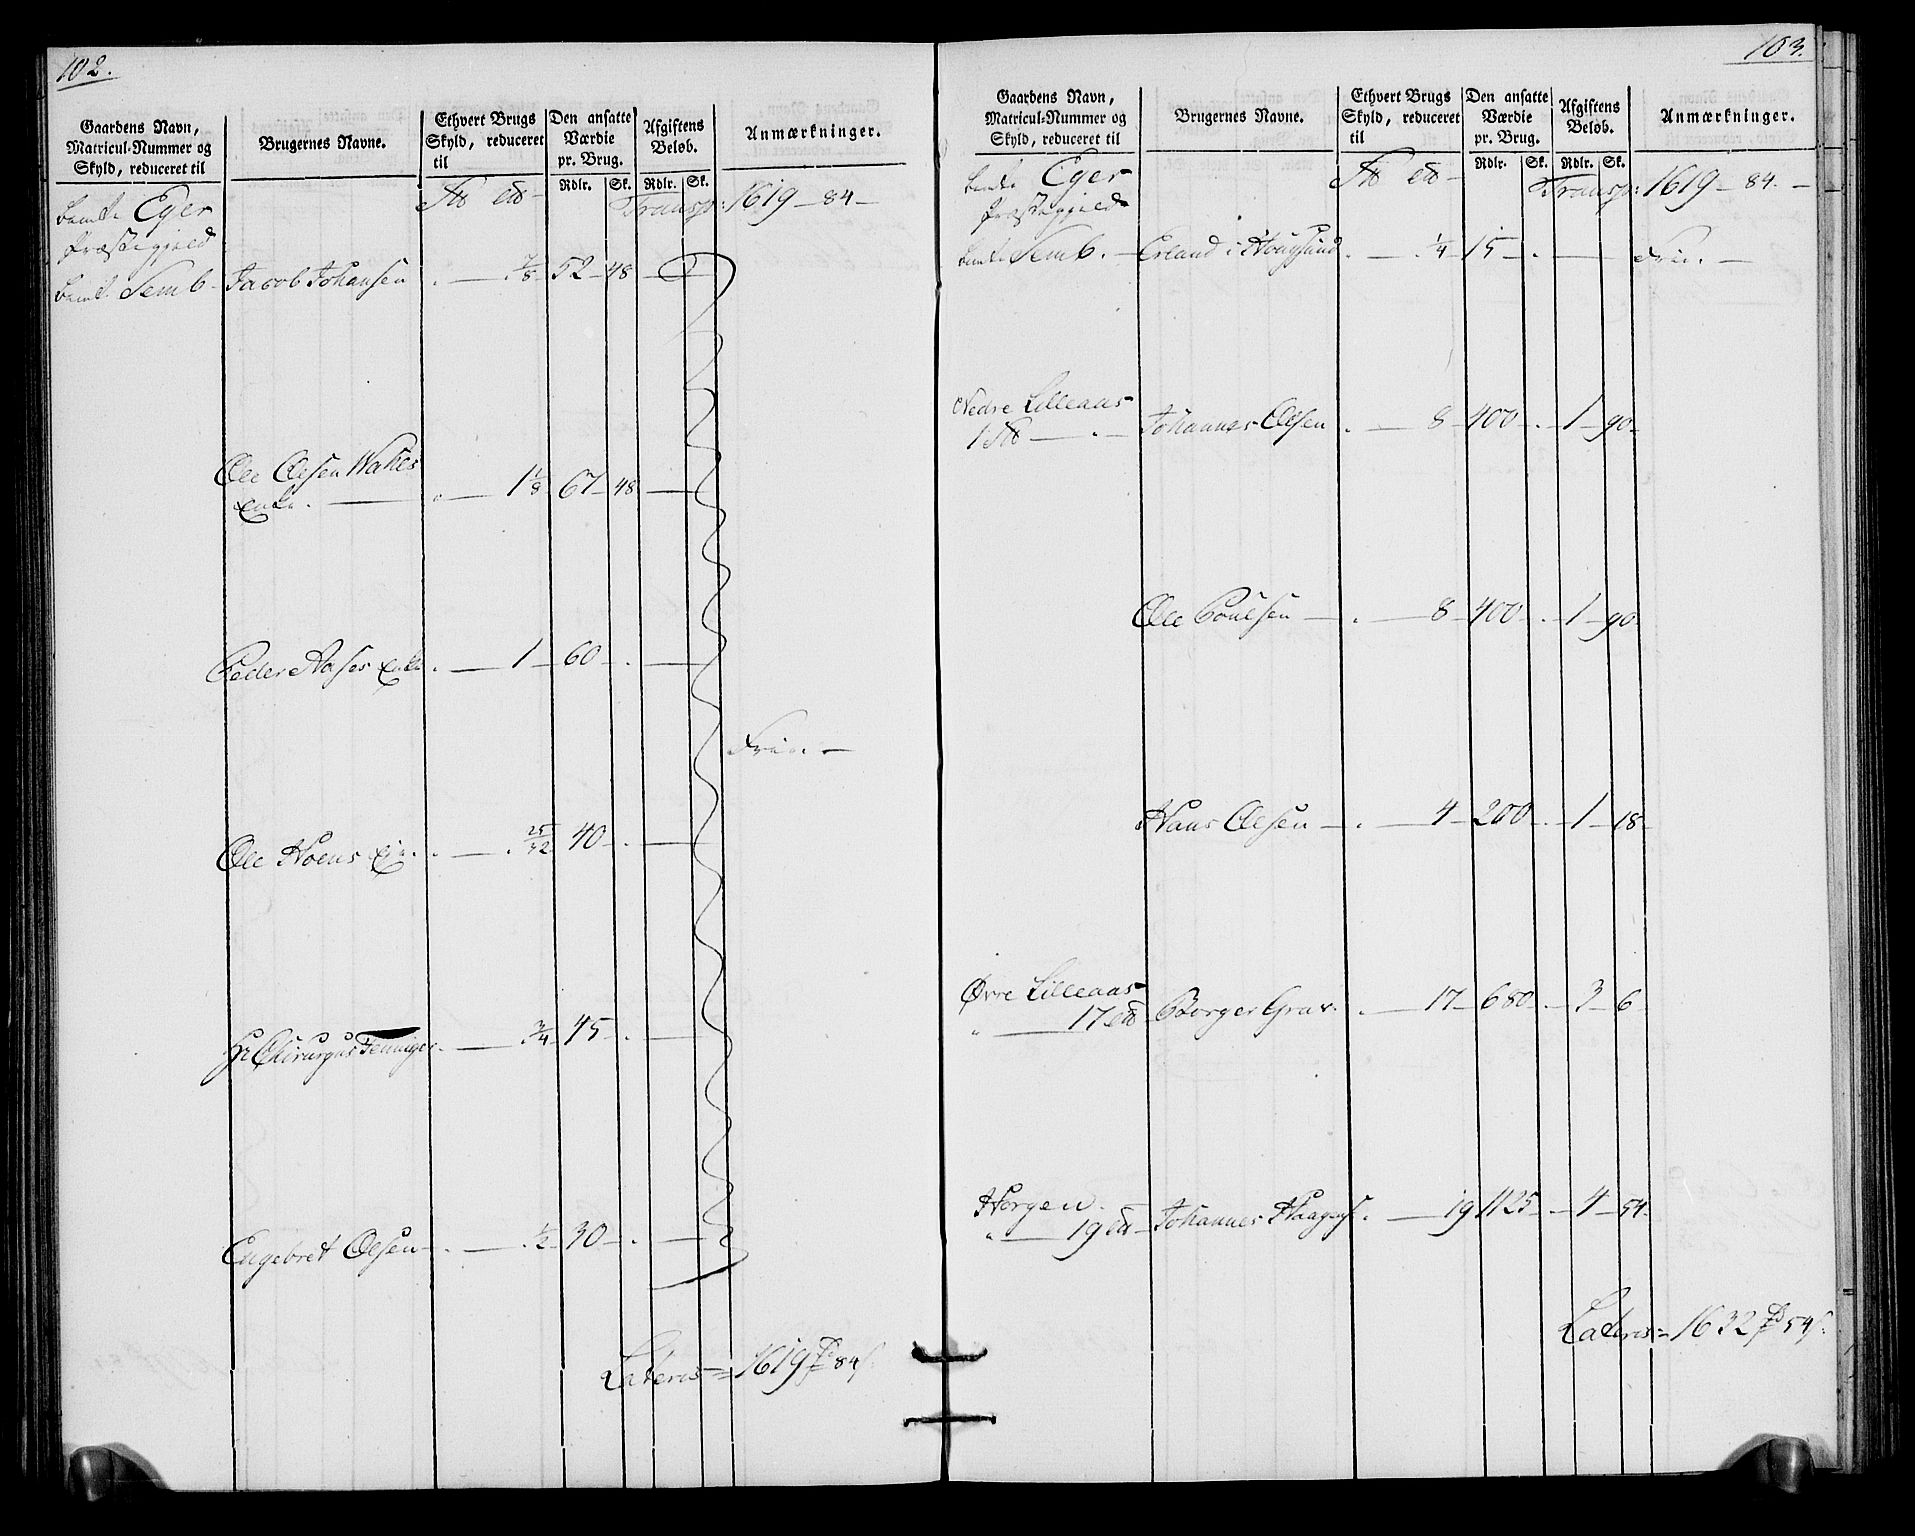 102.
Gaardens Navn,
Matricul-Nummer og
Skyld, reduceret til
Brugernes Navne.
Ethvert Brugs
Skyld, reduceret
til
Den ansatte
Værdie
pr. Brug.
Rdlr. Sk.
Afgiftens
Beløb.
Rdlr. Sk.
Anmærkninger.
Eger
Præstegjeld
Transp: 1619 - 84 -
Semb - Jacob Johansen . - 7/8 - 52 - 48 -
Ole Olsen
Enke . - 1 1/8 - 67 - 48 -
Peder Aases Enke . - 1 - 60 - . -
Frie. -
Ole Hoens . - 25/32 40 - . -
Hr Chirurgus . - 3/4 45 - . -
Engebret Olsen - . - 1/2 - 30 - . -
Lateris = 1619 84
103.
Gaardens Navn,
Matricul-Nummer og
Skyld, reduceret til
Brugernes Navne.
Ethvert Brugs
Skyld, reduceret
til
Den ansatte
Værdie
pr. Brug.
Rdlr. Sk.
Afgiftens
Beløb.
Rdlr. Sk.
Anmærkninger.
Eger
Præstegjeld
Transp: 1619 - 84 -
Semb. - Erland i Hougsund . - 1/4 15 - . - Frie. -
Nedre Lilleaas
1 - . - Johannes Olsen . - 8 - 400 - . - 1 - 90 -
Ole Poulsen - . - 8 - 400 - . - 1 - 90
Hans Olesen - . - 4 - 200 - . - 1 - 18 -
Øvre Lilleaas
17 - Borger Grav. . - 17 - 680 - . - 3 - 6 -
Horgen.
19 - Johannes . - 19 1125 - . - 4 - 54 -
Lateris = 1632 54